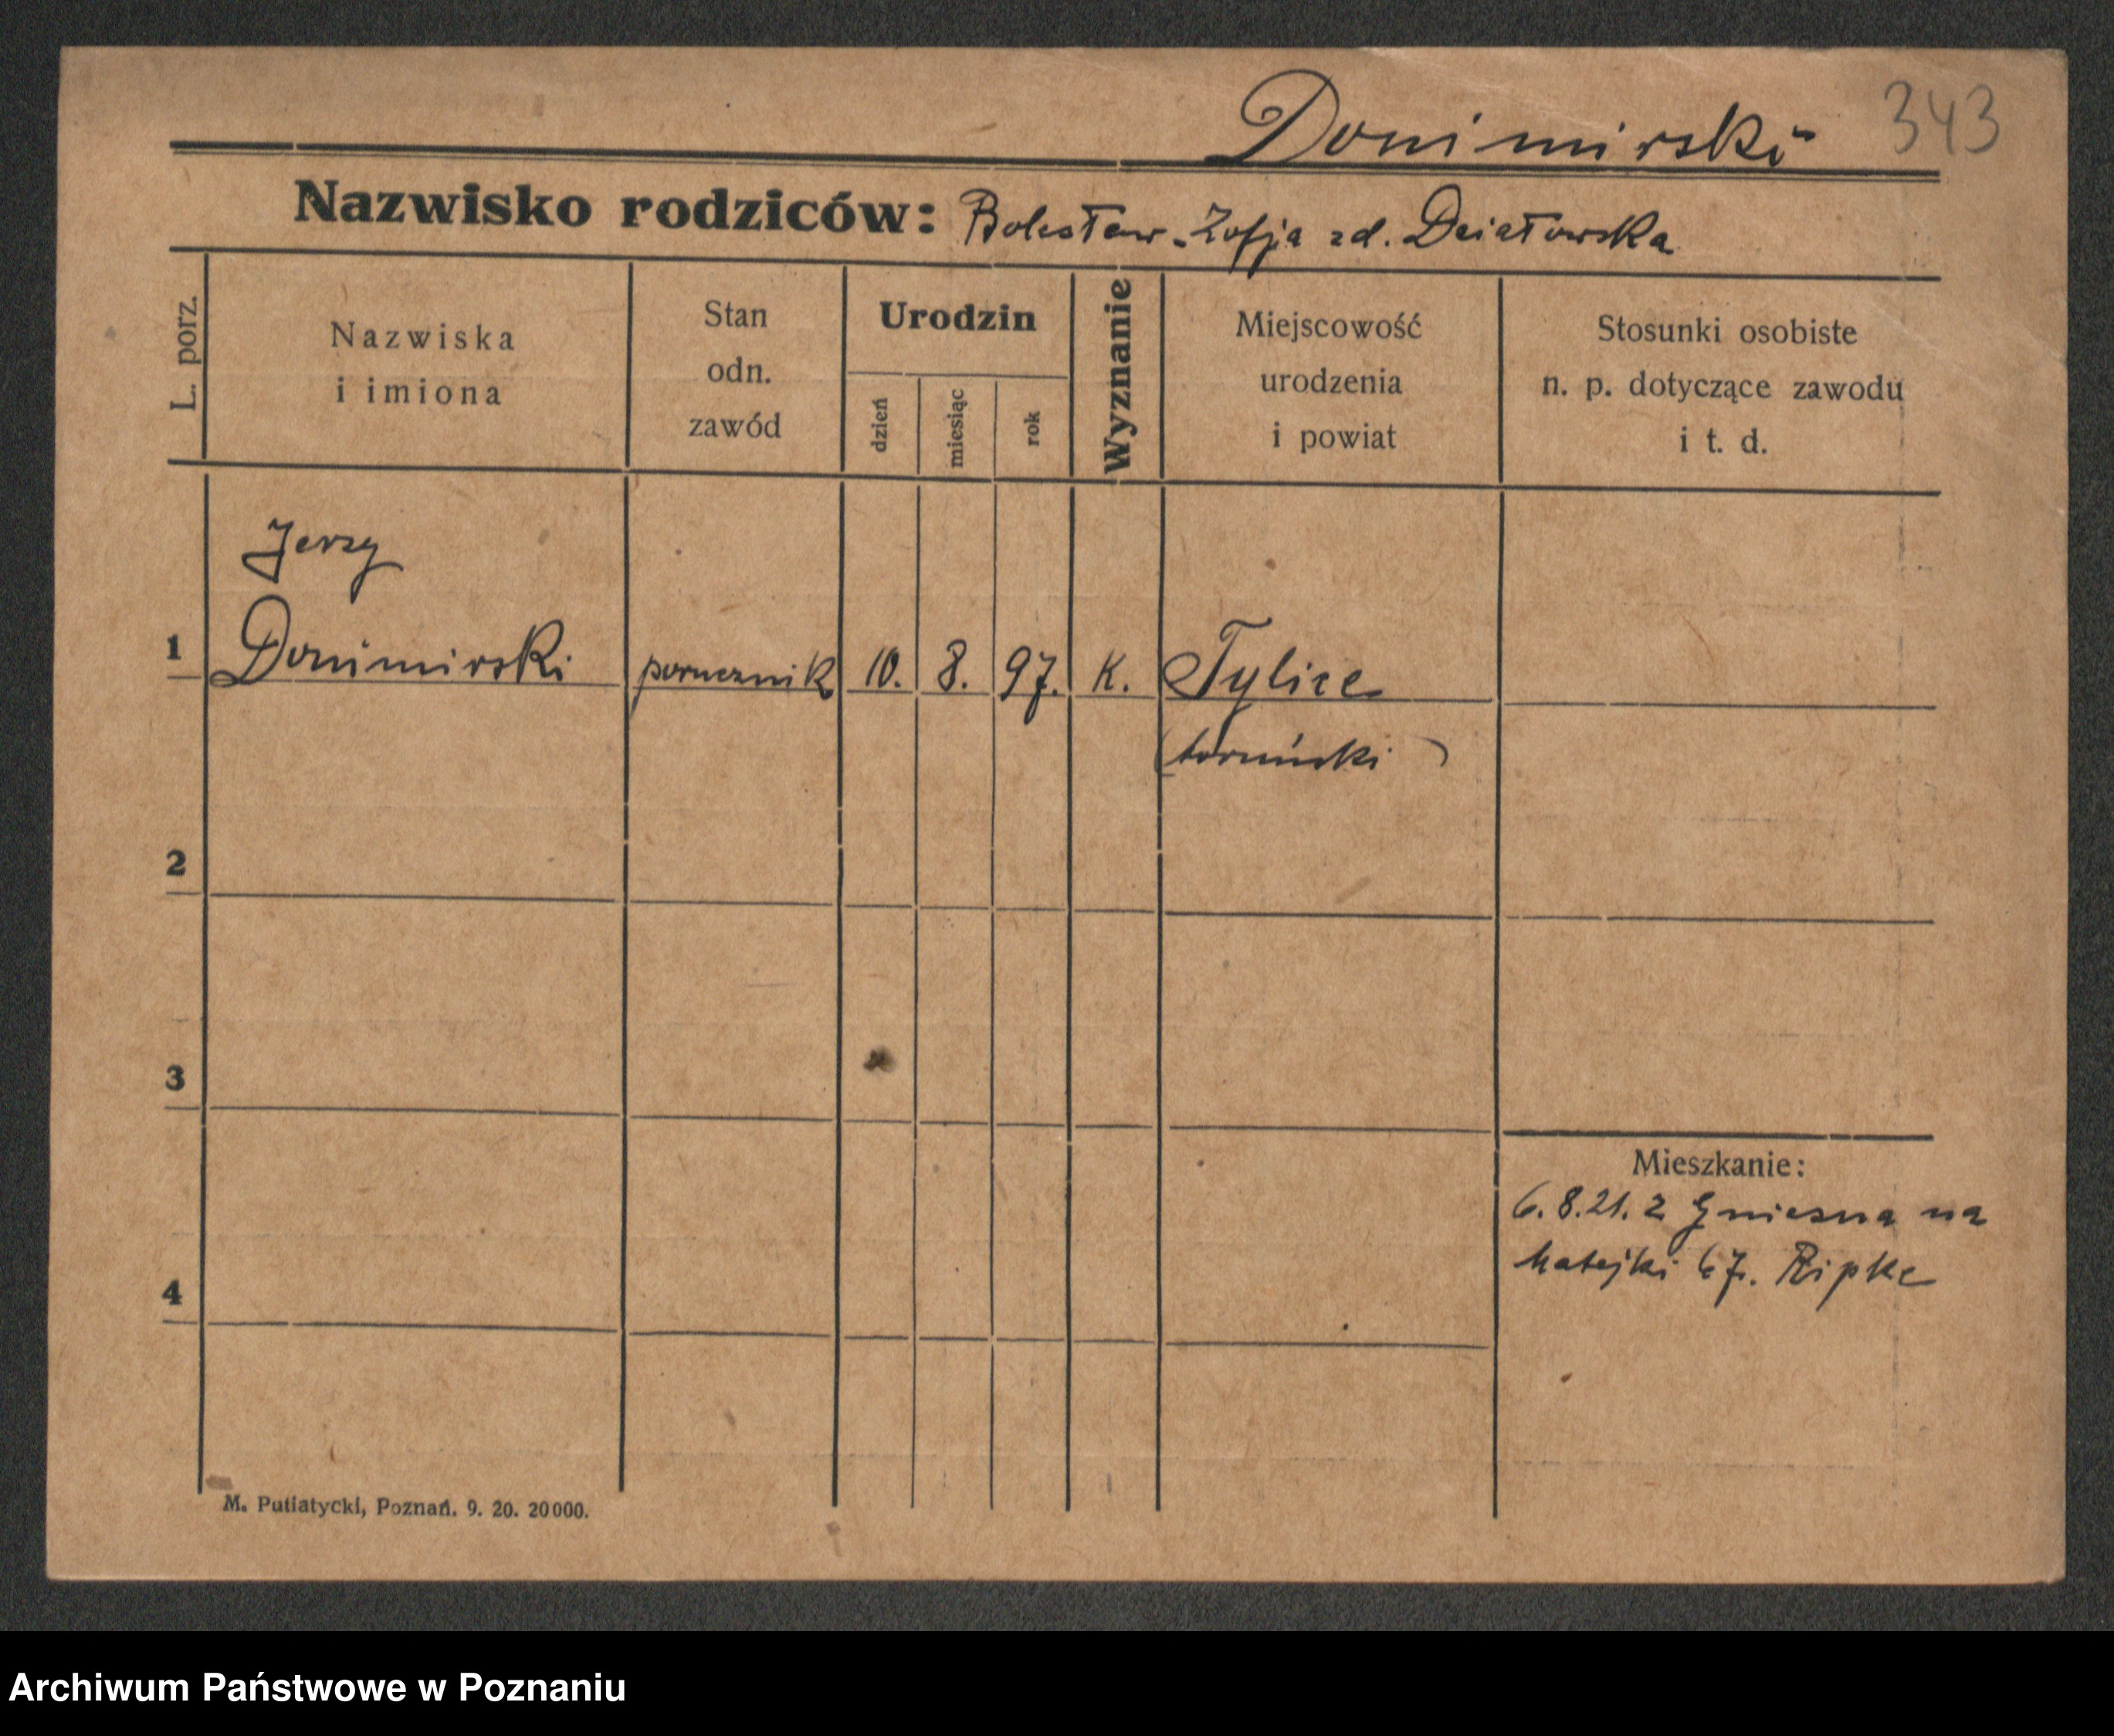 Donimirski 343
Nazwisko rodziców: Bolesław - Zofja zd. Działowska
L. porz.
Nazwiska
i imiona
Stan
odn.
zawód
Urodzin
dzień
miesiąc
rok
Wyznanie
Miejscowość
urodzenia
i powiat
Stosunki osobiste
n. p. dotyczące zawodu
i t. d.
Jerzy
1 Donimirski porucznik 10. 8. 97. K. Tylice
(toruński)
2
3
4
Mieszkanie:
6.8.21. z Gniezna na
Matejki 67. Ripke
M. Putiatycki, Poznań. 9. 20. 20000.
Archiwum Państwowe w Poznaniu